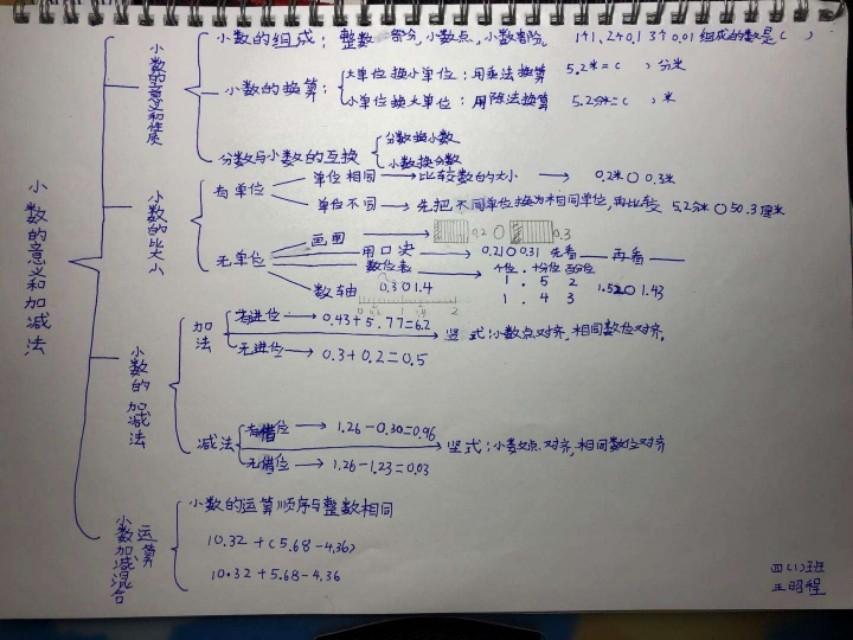 小数的意义和加减法
小数的意义和性质
小数的组成：整数部分，小数点，小数部分 1个1、2个0.1 3个0.01组成的数是（ ）
小数的换算：
大单位换小单位：用乘法换算 5.2米=（ ）分米
小单位换大单位：用除法换算 5.2分米=（ ）米
分数与小数的互换
分数换小数
小数换分数
小数的比大小
有单位
单位相同→比较数的大小→ 0.2米○0.3米
单位不同→先把不同单位换为相同单位，再比较 5.2分米○50.3厘米
无单位
画图→ 0.2○ 0.3
用口决→ 0.21○0.31 先看 再看
数位表→ 个位.十分位百分位
1.52
1.43
1.52○1.43
数轴 0.3○1.4
0 1 2
小数的加减法
加法
有进位→0.43+5.77=6.2
无进位→0.3+0.2=0.5
竖式：小数点对齐，相同数位对齐。
减法
有借位→1.26-0.30=0.96
无借位→1.26-1.23=0.03
竖式：小数点对齐，相同数位对齐
小数加减混合运算
小数的运算顺序与整数相同
10.32+(5.68-4.36)
10.32+5.68-4.36
四(1)班
王昭程